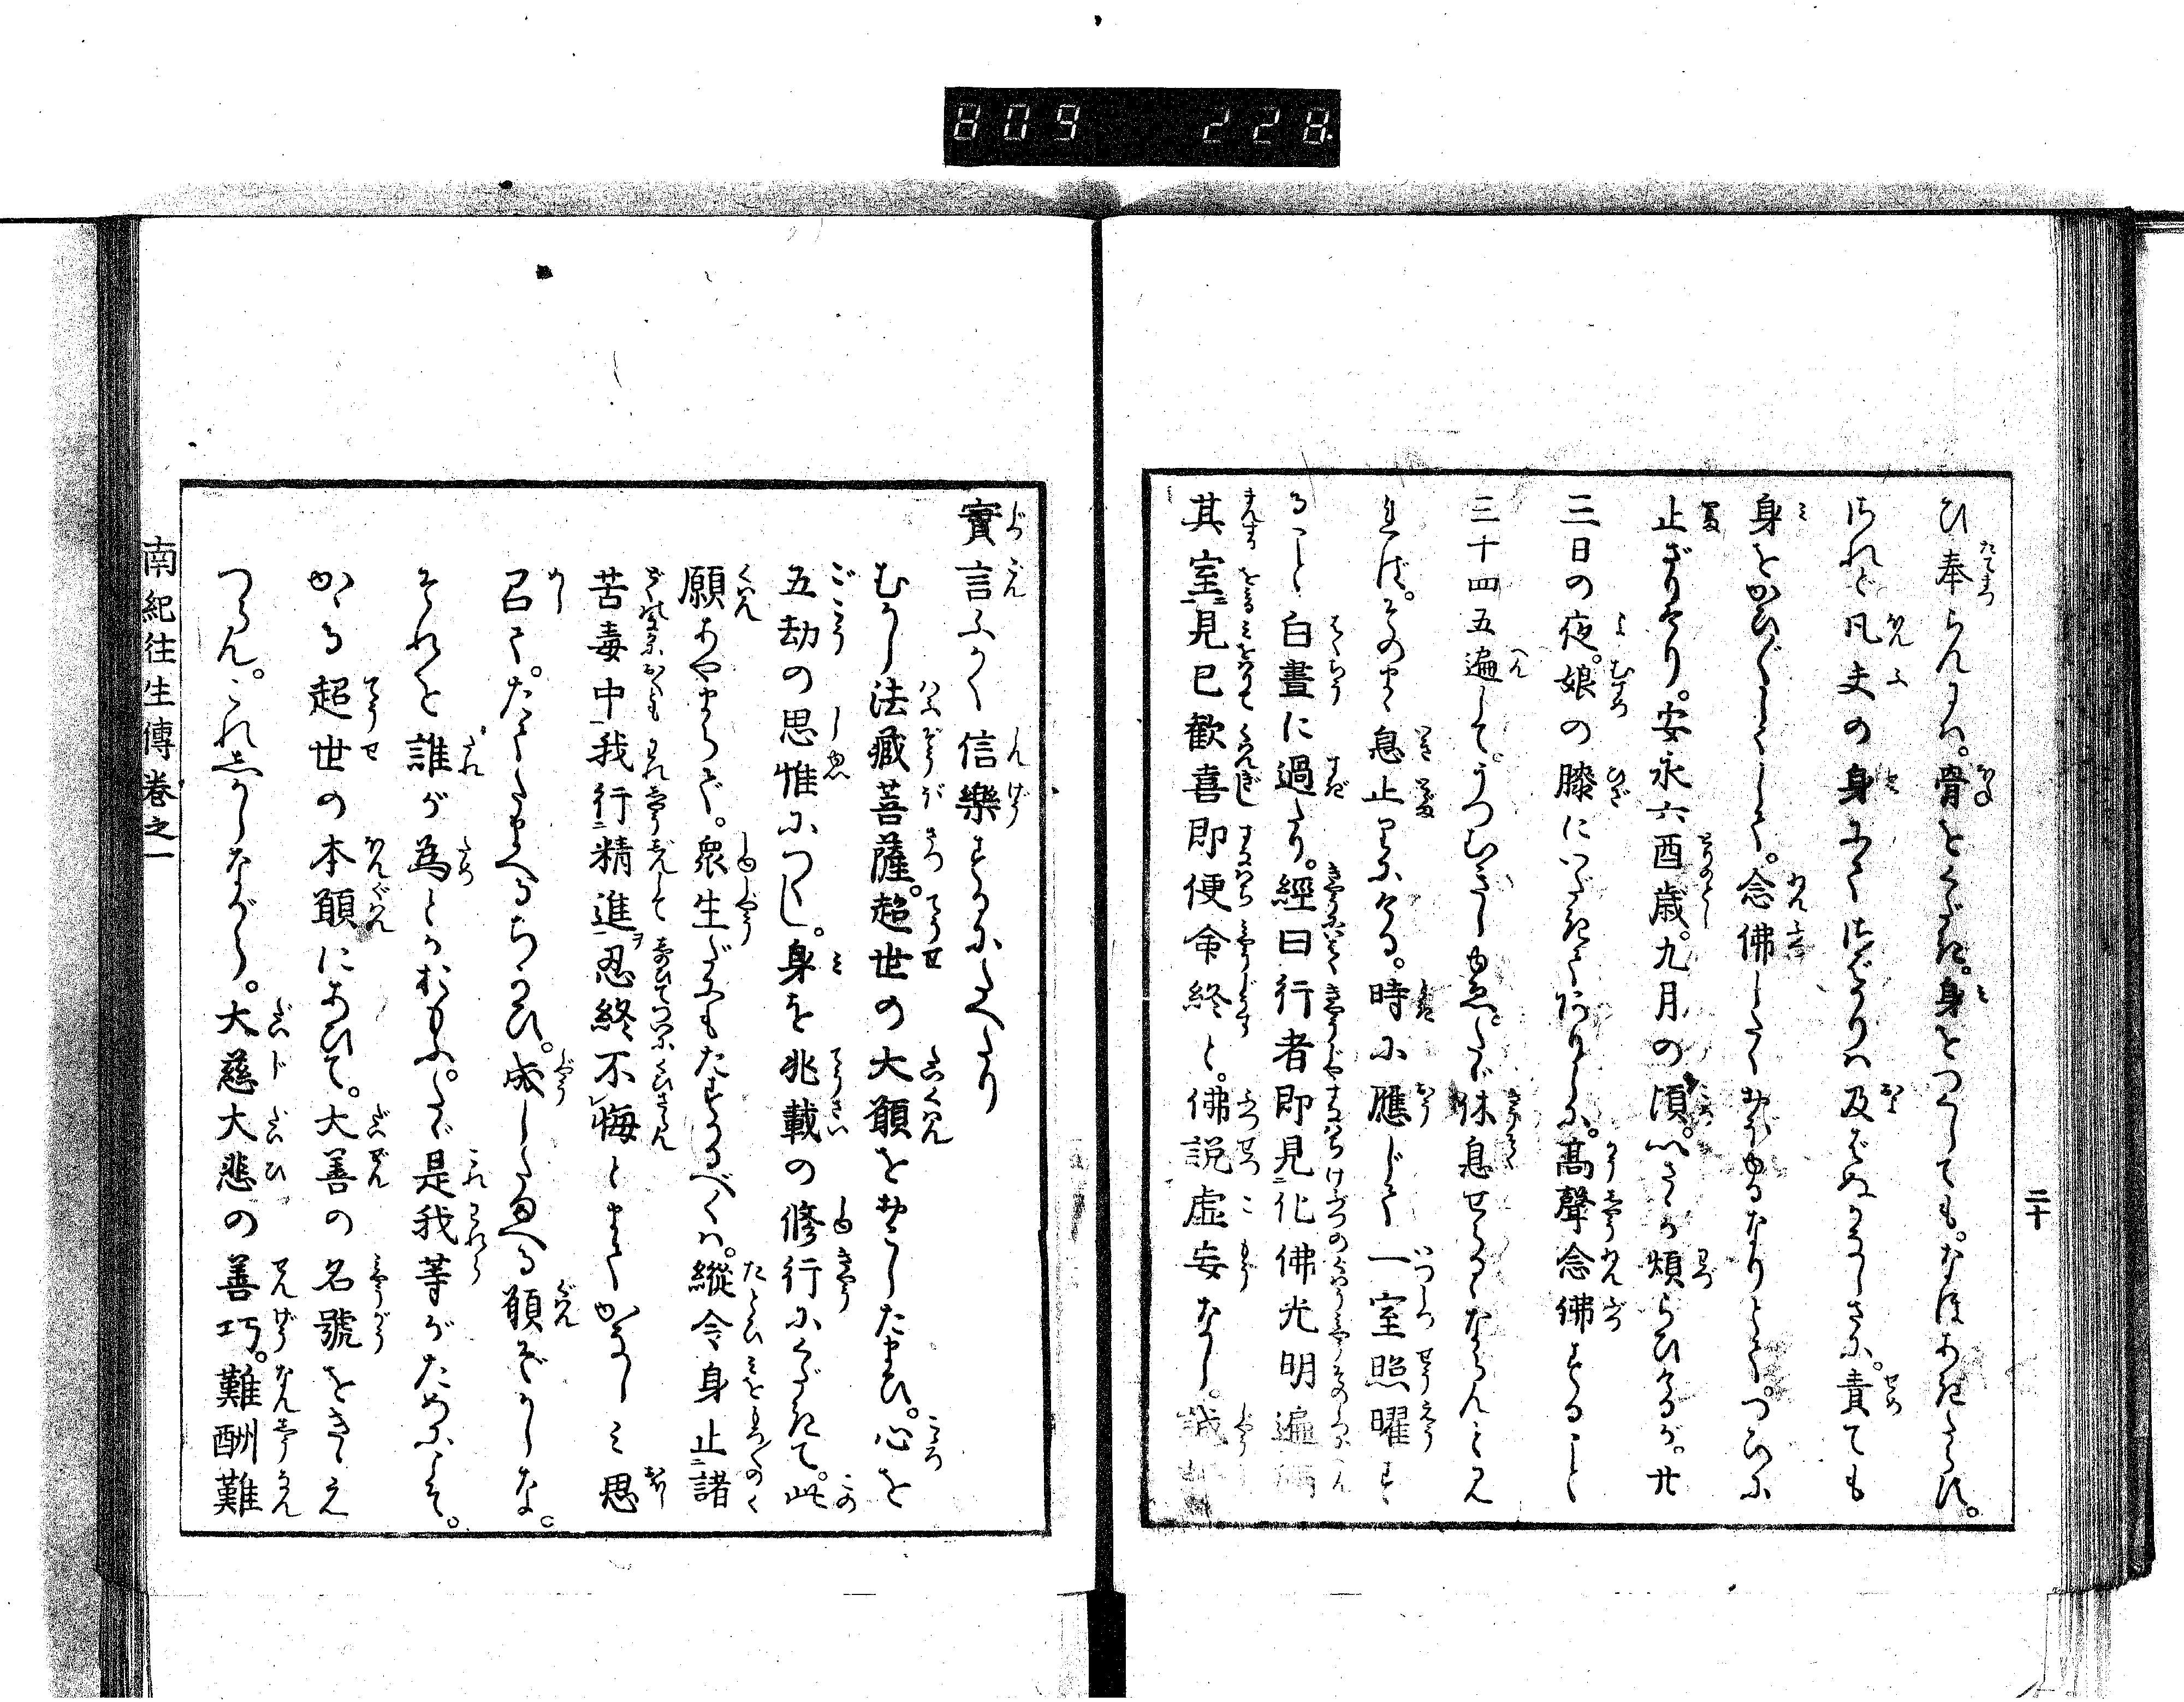 809 228
二十
ひ奉らんには。骨をくだき。身をつくしても。なほあきたらず。
されど凡夫の身にてさばかりは及ばぬかなしさに。責ても
身をかひ〴〵しくして。念佛したくおぼゆるなりとて。つひに
止ざりけり。安永六酉歳。九月の頃。いさゝか煩らひけるが。廿
三日の夜。娘の膝にいだきてありしに。高聲念佛すること
三十四五遍して。うつむきしゆゑ。たゞ休息せらるゝならんとみ
れば。そのまゝ息止りにける。時に應じて一室照曜す
ること白晝に過たり。經曰行者即見化佛光明遍滿
其室見已歡喜即便命終と。佛説虚妄なし。誠
實言ふかく信樂するにたへたり
むかし法藏菩薩。超世の大願をおこしたまひ。心を
五劫の思惟につくし。身を兆載の修行にくだきて。此
願あやまらず。衆生だにもたすかるべくは。縱令身止諸
苦毒中我行精進忍終不悔とまでかなしみ思
召て。たてたまへるちかひ。成したまへる願ぞかしな。
それを誰が為とかおもふ。たゞ是我等がためにこそ。
かゝる超世の本願にあひて。大善の名號をきゝえ
つらん。これしかしながら。大慈大悲の善巧。難酬難
南紀往生傳卷之一